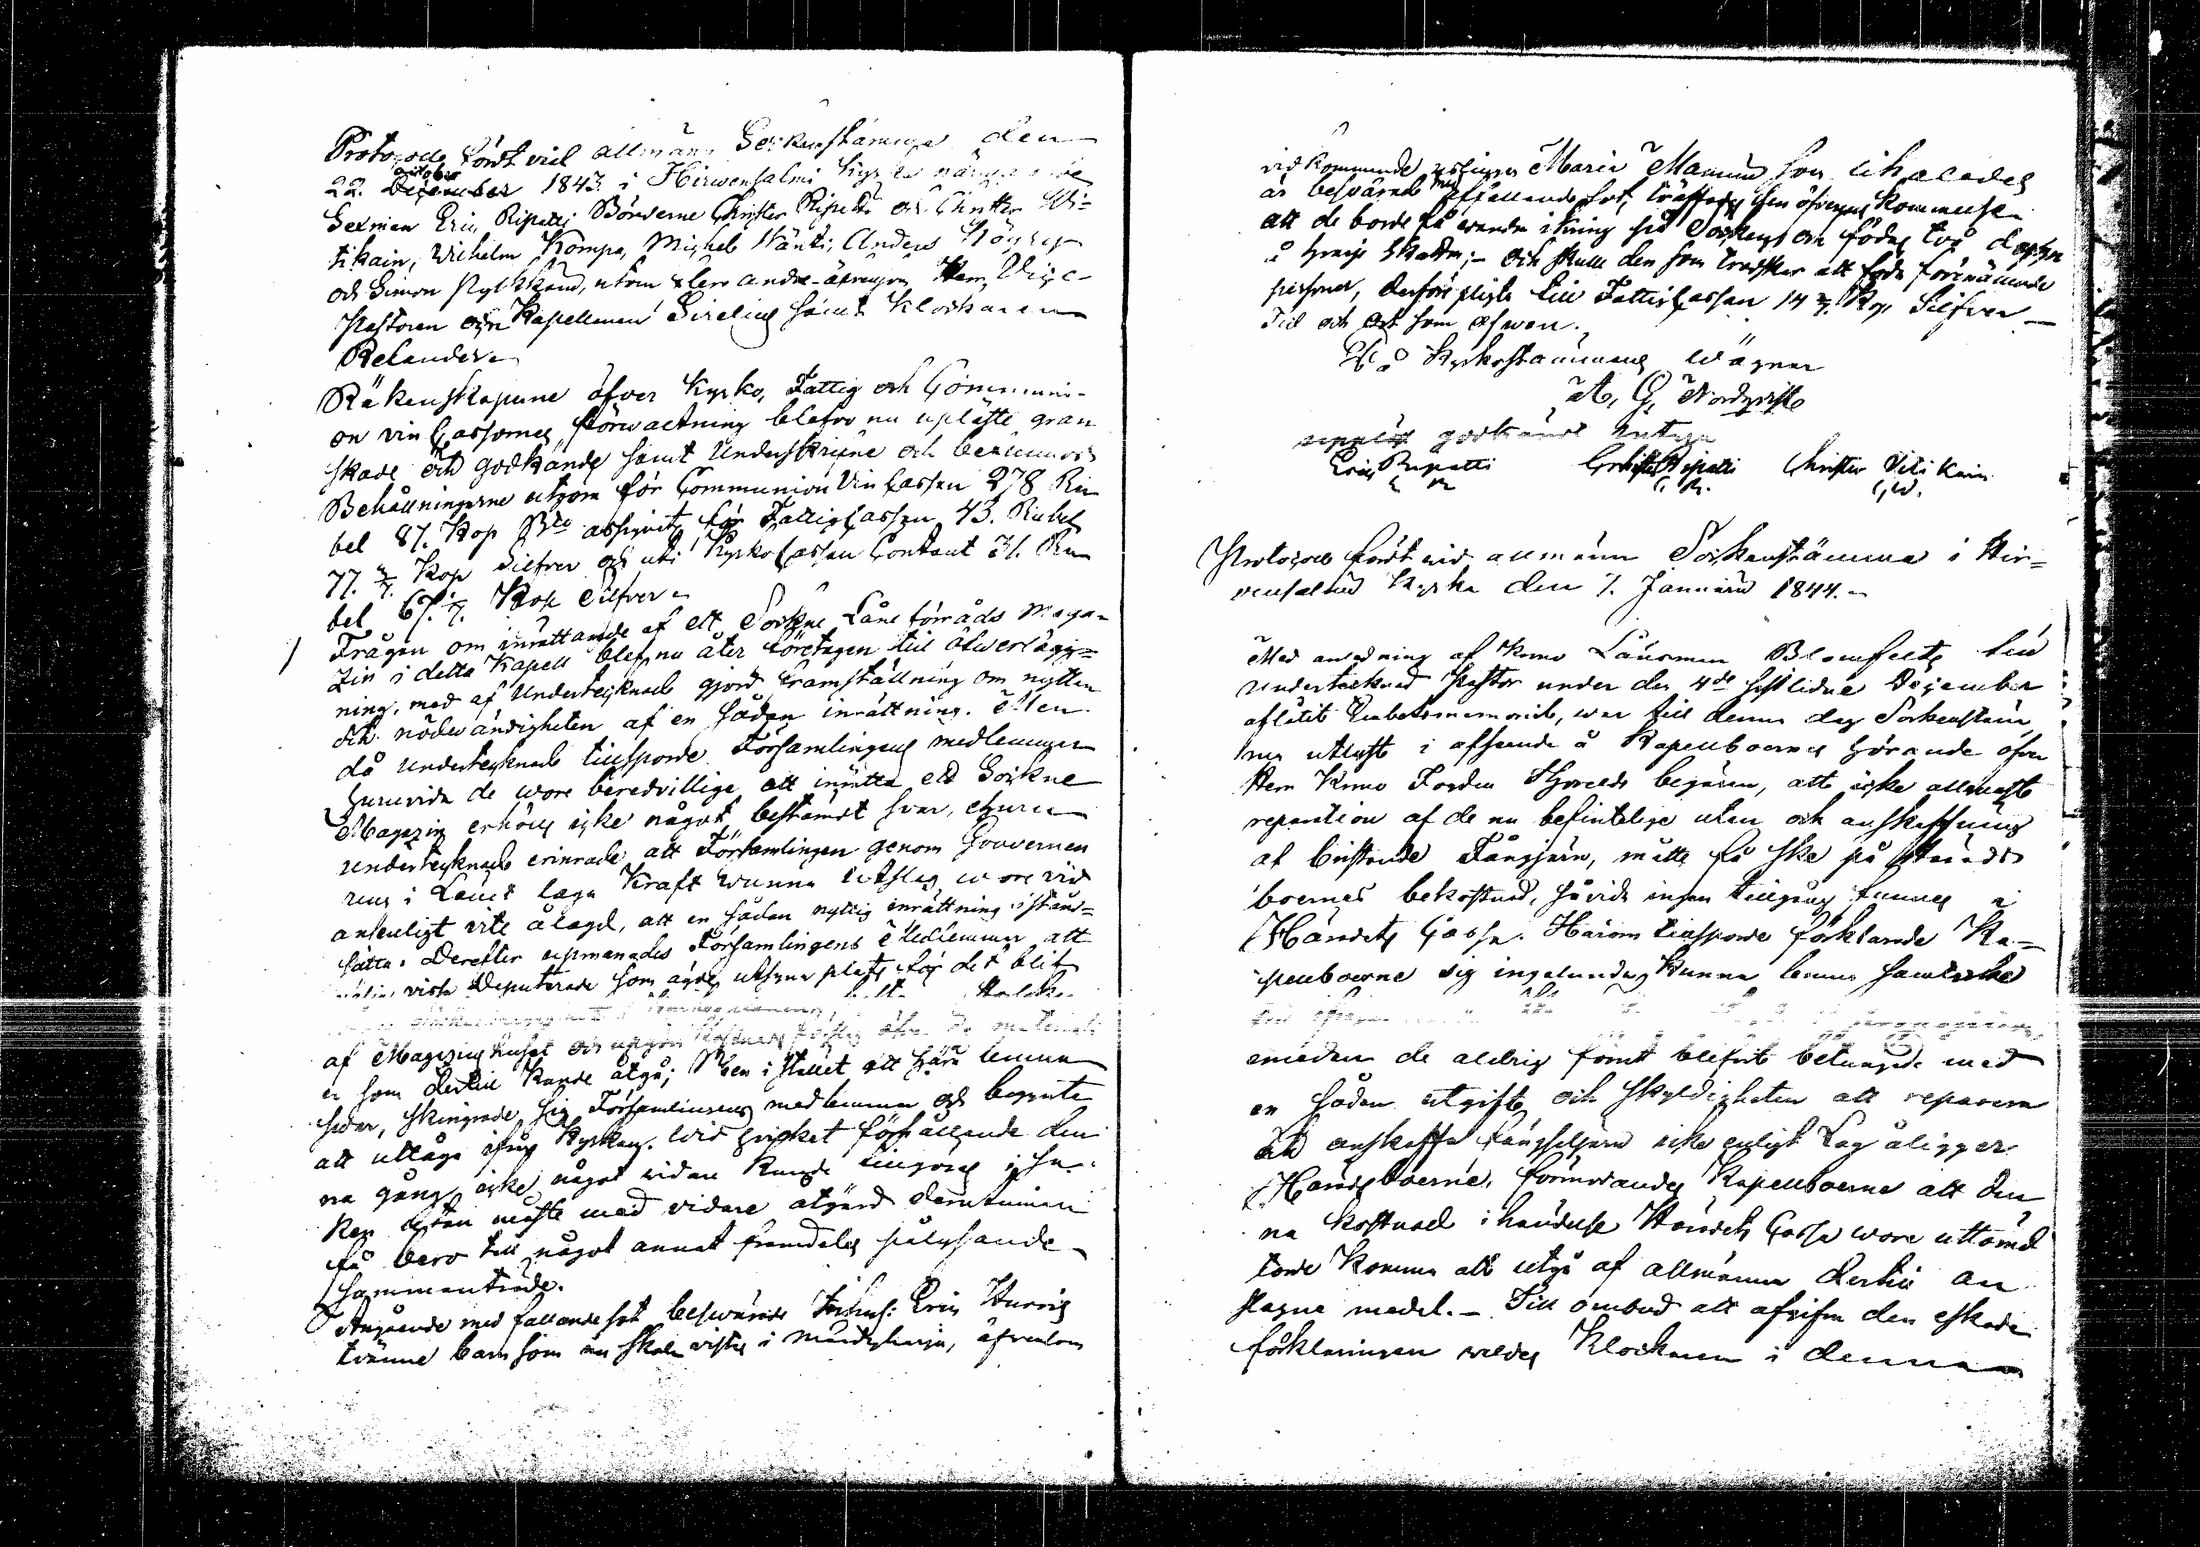 Protocoll fördt vid allmän Sockenstämma den
22. October December 1843 i Hirwensalmi Kyrka närvarande
Sexman Eric Ripatti, Bönderne Christer Ripatti och Christer Wi-
tikain, Wilhelm Kompa, Michel Hänti, Anders
och Simon Pylkkänd, utom flere andre äfvensom Herr Vice
Pastoren och Kapellanen Sirelius samt Klockaren
Relander.
Räkenskaperne öfver Kyrko, Fattig och Communi-
on vin Cassornes förwaltning blefvo nu upläste, gran
skade och godkände samt Underskrifne och
Behållningarne utgöra för Communion Vin Cassan 278 Ru
bel 87. Kop Bco assignat, för Fattig Cassan 43. Rubel
77. 3/7. Kop Silfver och uti Kyrko Cassan Contant 31. Ru
bel 67. 1/7. Kop Silfver.
Frågan om inrättande af ett Sockne Låne förråds Maga-
zin i detta Kapell blef nu åter företagen till öfwerlägg=
ning, med af Undertecknad gjord framställning om nyttan
och nödwändigheten af en sådan inrättning. Men
då Undertecknad tillsporde Församlingens medlemmar
huruvida de wore beredvillige att inrätta ett Sockne
Magazin erhölls icke något bestämdt svar, churu
Undertecknad erinrade att Församlingen genom Gouverneu
rens i Länet laga Kraft wunna Utslag wore vid
ansenligt vite ålagd, att en sådan nyttig inrättning istånd=
sätta. Derefter upmanades Församlingens Medlemmar att
vissa Deputerade som ägde utsyna plats för det blif
af Magazins huset och upgöra Kostnads förslag öfver de material
er som dertill kunde åtgå; Men i stället att härå lemna
svar, skingrade sig Församlingens medlemmar och begynte
att uttåga ifrån Kyrkan. Wid hvilket förhållande den
na gång icke något vidare kunde tillgöras i sa-
ken utan måste med vidare åtgärd derutinnan
få bero till något annat framdeles pålysande
sammanträde.
Angående med fallandesot beswärade Inhys: Eric Hurrig
tvänne barn som nu skola vistas i Mändyharju, äfvensom
vidkommande Maria Manninn som likaledes
är besvärad med fallandesot, träffades then öfverens kommelse
att de borde få vandra ikring hela Sockens och födas två dagar
å hvarje Skatte;- Och skulle den som tredskar att föda förenämnde
personer, derföre pligta till Fattig Cassan 14 2/7. Kop. Silfver
Tid och Ort som ofwan.
På Kyrkostämmans wägnar
A. G. Nordqvist
uppläst godkändt
Eric Ripatti Christer Ripatti Christer Vitikain
Protocoll fördt wid allmänn Sockenstämma i Hir=
vensalmi Kyrka den 7. Januarii 1844.
Med anledning af Krono Länsman Blomfelts till
Undertecknad Pastor under den 4de sistlidne December
aflåtit Embetsmemorial, war till denna dag Sockenstäm
ma utlyst i afseende å Kapellboernes hörande öfver
Herr Krono Fogden Thorelds begäran, att icke allenast
reparation af de nu befintelige utan och anskaffning
af bristande Fångjärn, måtte få ske på Härads
boernes bekostnad, såvida ingen tillgång funnes i
Härads Cassa. Härom tillsporde förklarade Ka-
pellboerne sig ingalunda kunna lemna samtycke
emedan de aldrig förut blifvit betungade med
en sådan utgift och skyldigheten att reparera
och anskaffa fängseljern icke enligt Lag åligger
Häradsboerne, förmodandes Kapellboerne att den
na kostnad i händelse Härads Cassa wore uttömd
torde komma att utgå af allmänna dertill an
slagne medel.- Till ombud att afgifva den eskade
förklaringen valdes Klockaren i denna